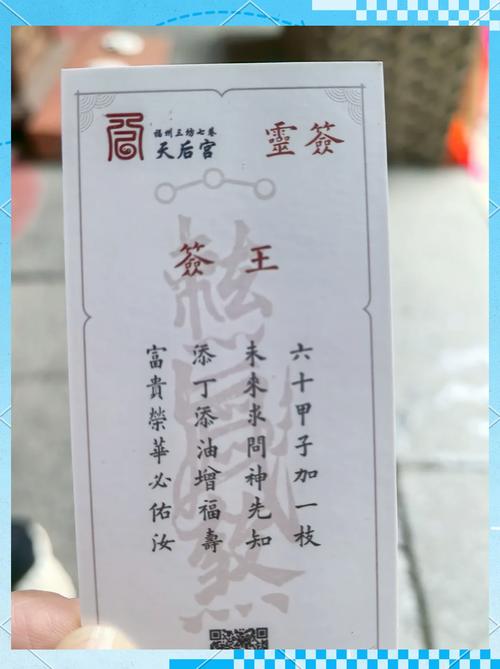 福州三坊七巷
天后宫
靈簽
簽王
六十甲子加一枝
未來求問神先知
添丁添油增福壽
富貴榮華必佑汝